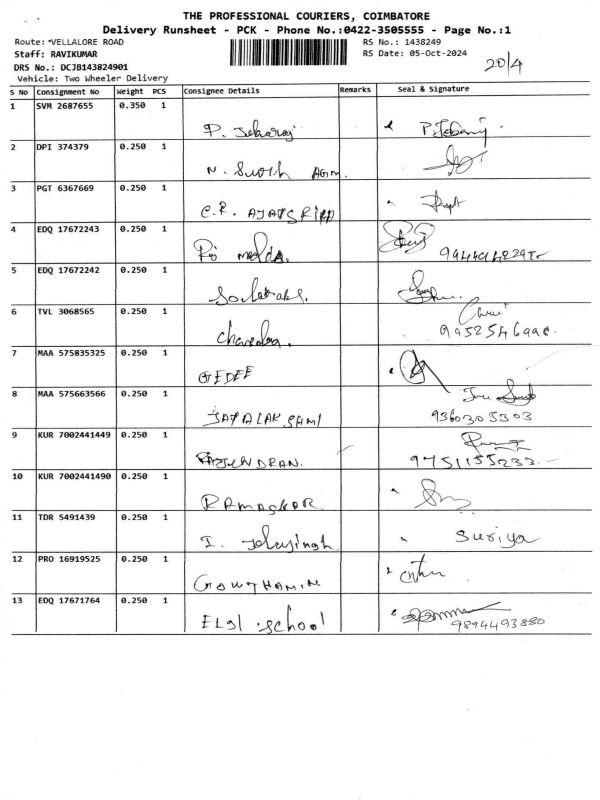 THE PROFESSIONAL COURIERS, COIMBATORE
Delivery Runsheet - PCK - Phone No.:0422-3505555 - Page No.:1
Route: *VELLALORE ROAD RS No.: 1438249
Staff: RAVIKUMAR RS Date: 05-Oct-2024
DRS No.: DCJB143824901 20/4
Vehicle: Two Wheeler Delivery
S No Consignment No Weight PCS Consignee Details Remarks Seal & Signature
1 SVM 2687655 0.350 1
P. Jebaraj P. Jebaraj
2 DPI 374379 0.250 1
AGM
3 PGT 6367669 0.250 1
C.R.
4 EDQ 17672243 0.250 1
5 EDQ 17672242 0.250 1
6 TVL 3068565 0.250 1
7 MAA 575835325 0.250 1
GEDEE
8 MAA 575663566 0.250 1
JAYALAKSHMI 9360305303
9 KUR 7002441449 0.250 1
RAJENDRAN. 9751155233
10 KUR 7002441490 0.250 1
11 TDR 5491439 0.250 1
I. Suriya
12 PRO 16919525 0.250 1
GOWTHAM.N
13 EDQ 17671764 0.250 1
ELGI School 9894493880